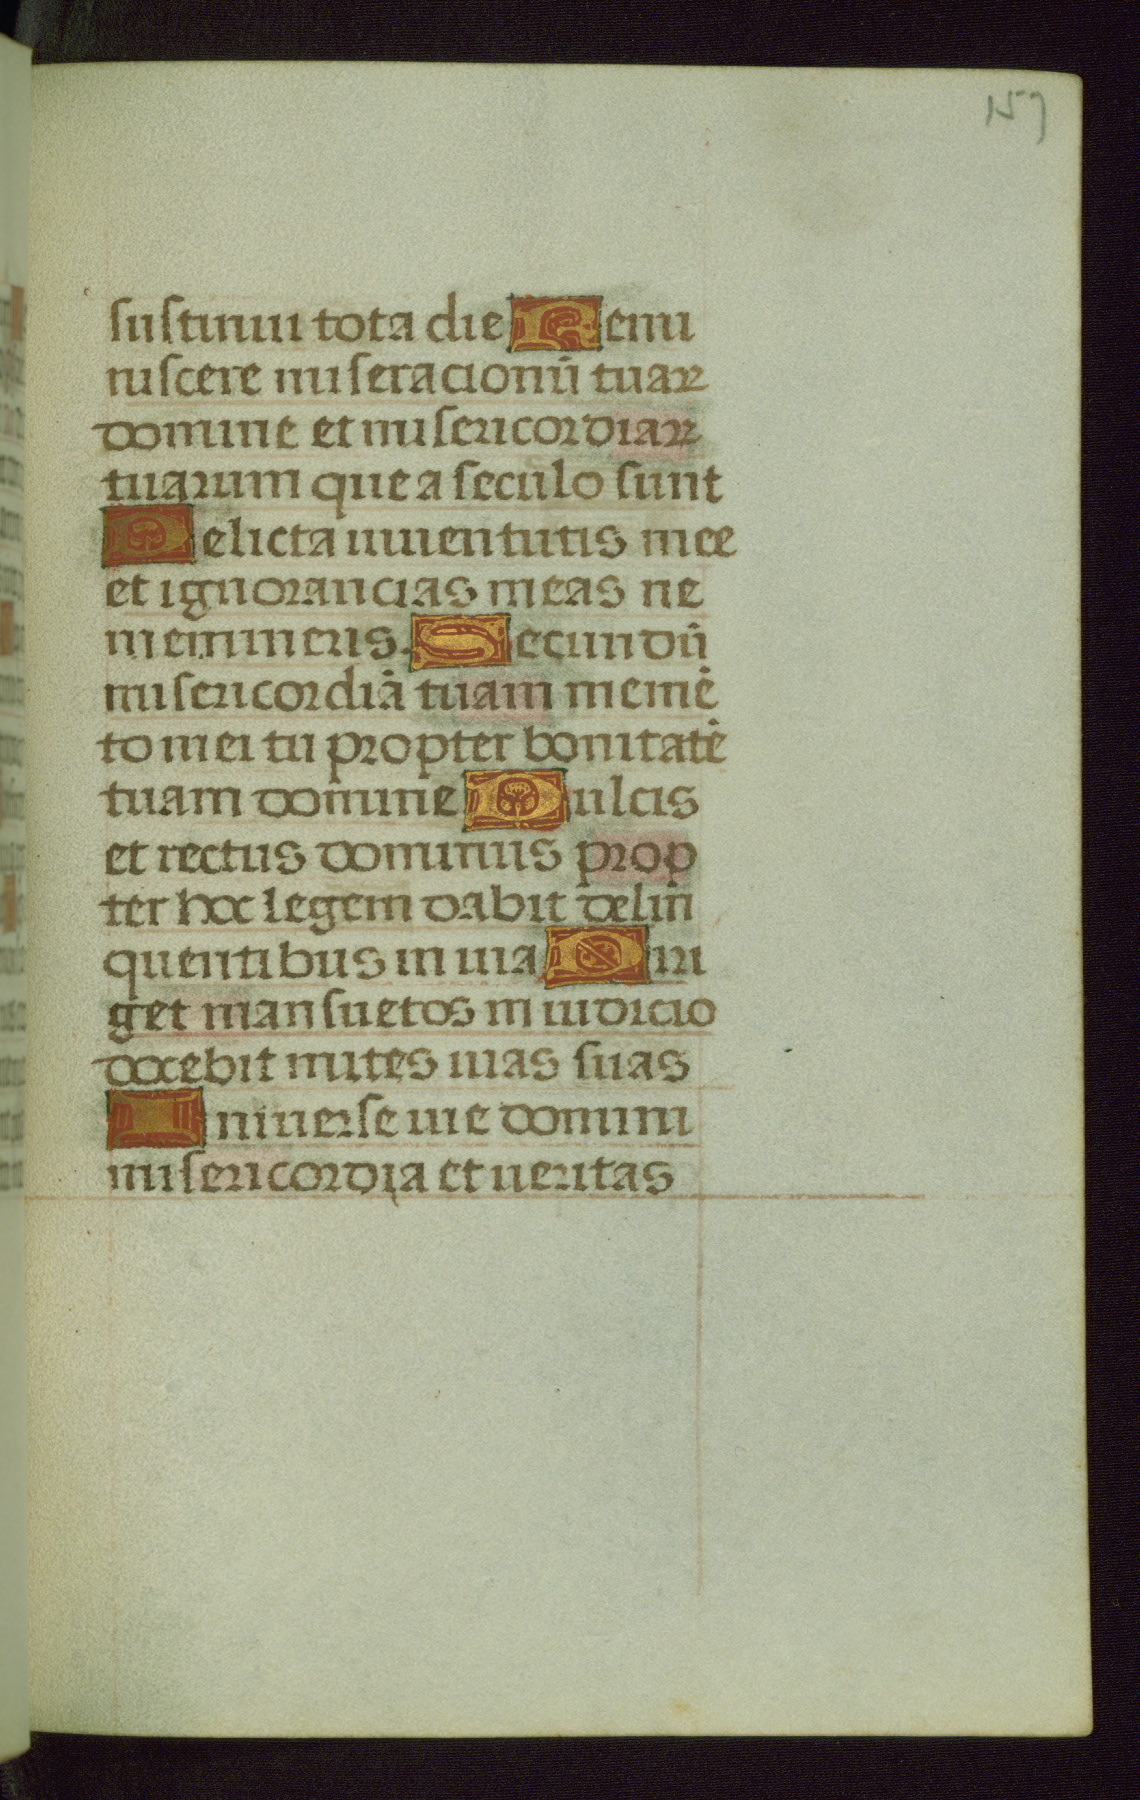 157
sustinui tota die Remi
niscere miseracionū tuaꝝ
domine et misericordiaꝝ
tuarum que a seculo sunt
Delicta iuuentutis mee
et ignorancias meas ne
memineris. Secundū
misericordiā tuam memē
to mei tu propter bonitatē
tuam domine Dulcis
et rectus dominus prop
ter hoc legem dabit delin
quentibus in uia Diri
get mansuetos in iudicio
docebit mites uias suas
Uniuerse uie domini
misericordia et ueritas